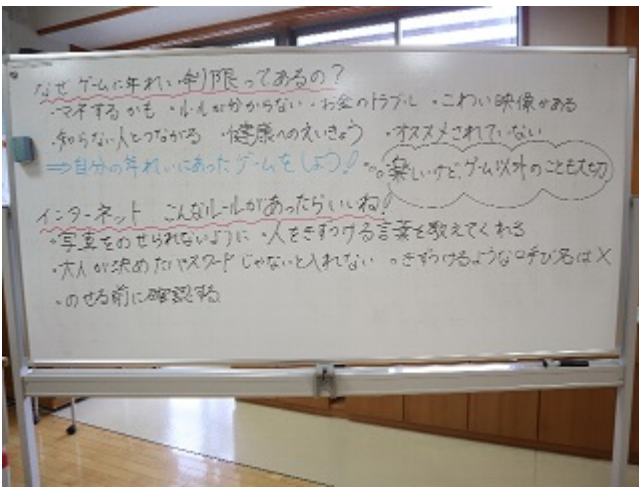 なぜ ゲームに年れい制限ってあるの？
・マネするかも ・ルールが分からない ・お金のトラブル ・こわい映像がある
・知らない人とつながる ・健康へのえいきょう ・オススメされていない
⇒自分の年れいにあったゲームをしよう！ 楽しいけど、ゲーム以外のことも大切
インターネット こんなルールがあったらいいね！
・写真をのせられないように ・人をきずつける言葉を教えてくれる
・大人が決めたパスワードじゃないと入れない ・きずつけるような呼び名は×
・のせる前に確認する